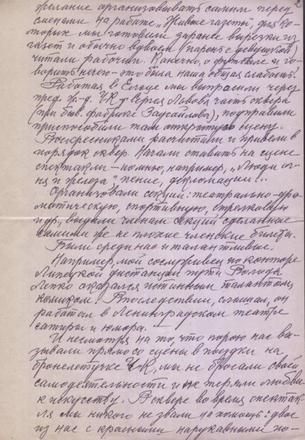 желание организовывать самим перед
сменами на работе „Живые газеты", для ко-
торых мы готовили заранее вырезки из
газет и обычно вдвоем (парень с девушкой)
читали рабочим. Конечно, о футболе и го-
ворить нечего – это была наша общая слабость.
Работая в Ельце мы выпросили через
пред. у-д. УК у Сергея Львова часть сквера
(при быв. фабрике Заусайлова), подправили
приспособили там открытую сцену.
Воскресниками расчистили и привели в
порядок сквер. Начали ставить на сцене
спектакли – помню, например, „Люди ог-
ня и железа", пение, декламации.
Организовали секции: театрально-дра-
матическую, спортивную, стрелковую
и др., выдали членам секций сделанные
самими же не плохие членские билеты.
Были среди нас и талантливые.
Например, мой сослуживец по конторе
Липецкой дистанции пути Володя
Лепко оказался истинным талантом,
комиком. Впоследствии, слышал, он
работал в Ленинградском театре
сатиры и юмора.
И несмотря на то, что порою нас вы-
зывали прямо со сцены в поездки на
бронелетучке ЧК, мы не бросали своей
самодеятельности и не теряли любви
к искусству. В сквере во время спектак-
ля мы никого не звали на помощь: двое
из нас с красными нарукавными по-